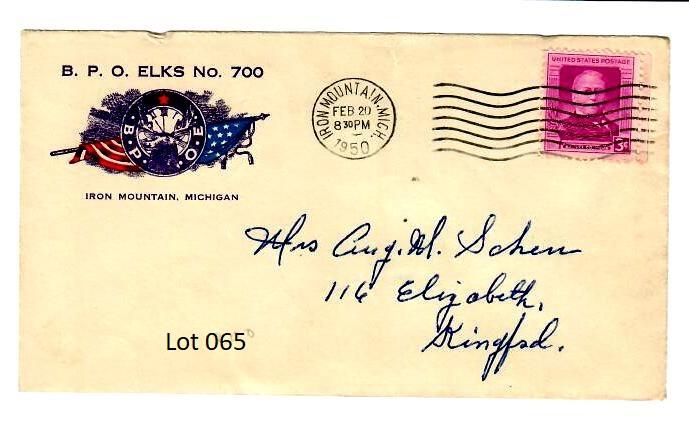 B. P. O. ELKS No. 700
B P O E
IRON MOUNTAIN, MICHIGAN
IRON MOUNTAIN, MICH.
FEB 20
8 30 PM
1950
UNITED STATES POSTAGE
3¢
Mrs Aug. M. Schen
116 Elizabeth,
Kingfsd.
Lot 065